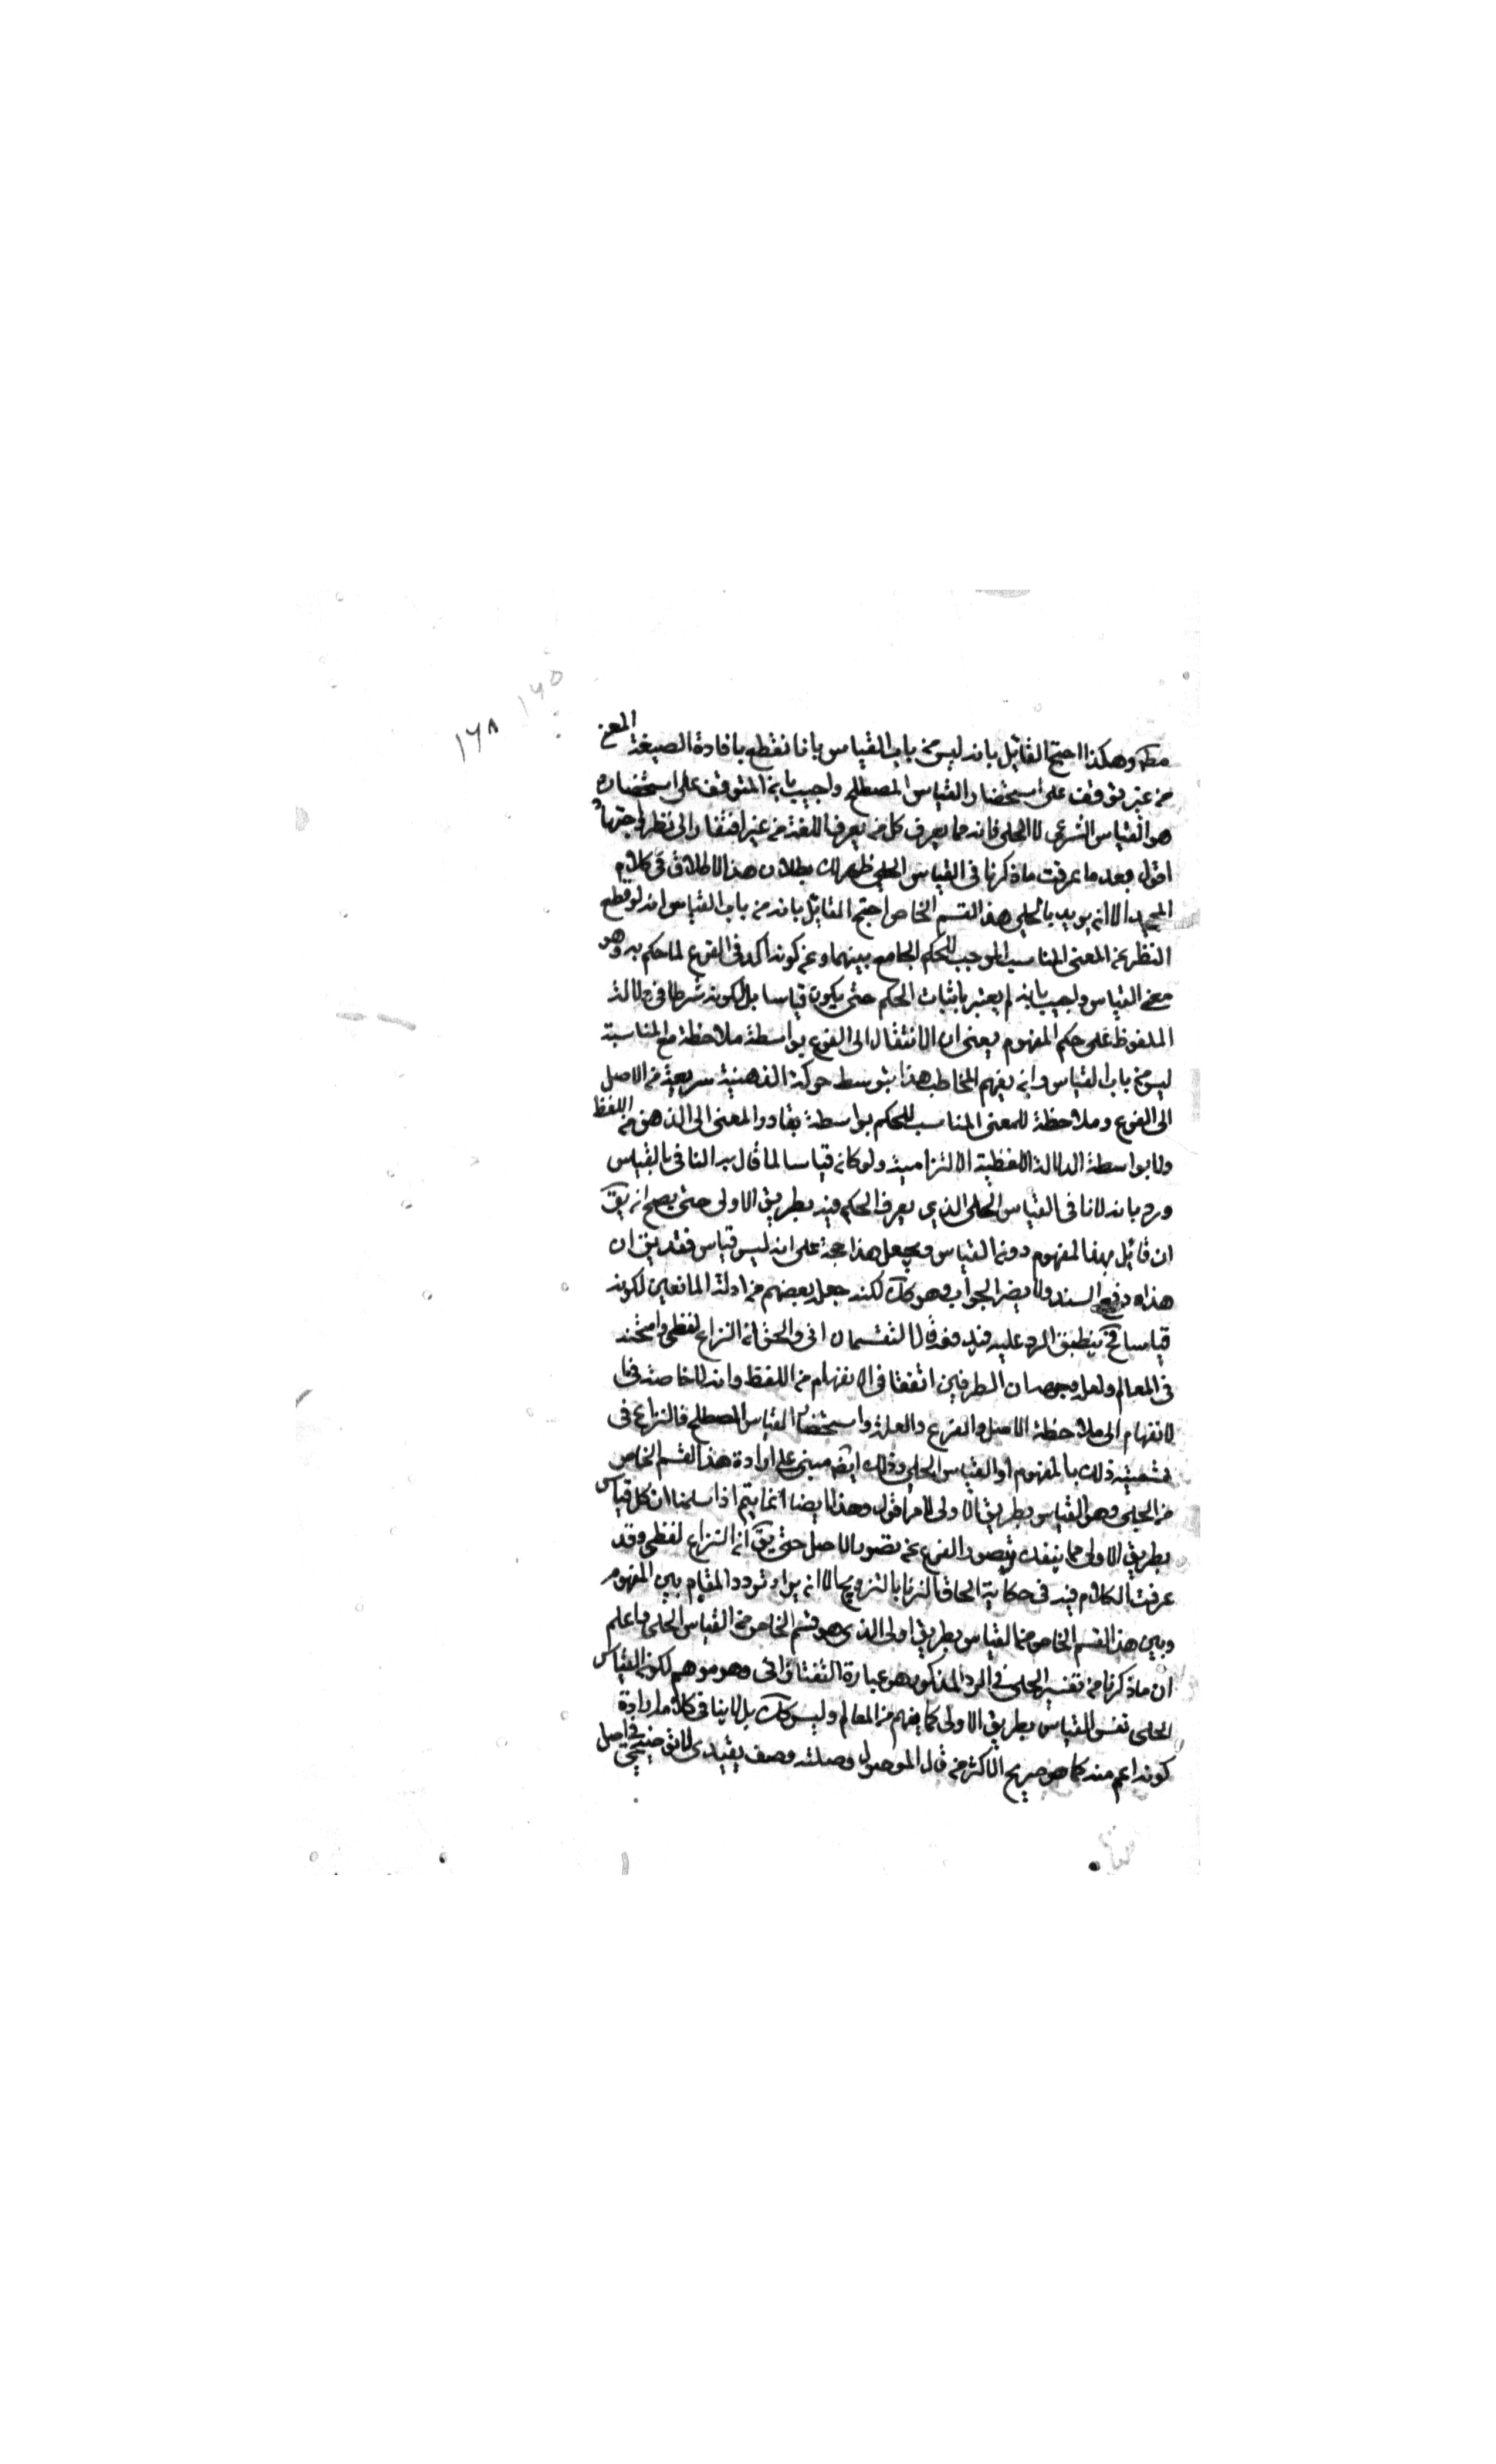 ١٦٥
١٦٨
وهكذا احتج القائل بانه ليس من باب القياس بانا نقطع بافادة الصيغة المعنى
من غير توقف على استحضار القياس المصطلح واجيب بان المتوقف على استحضاره
هو القياس الشرعى لا الجلى فانه مما يعرفه كل من يعرف اللغة من غير افتقار الى نظر واجتهاد
اقول وبعد ما عرفت ما ذكرنا فى القياس الجلى ظهر لك بطلان هذا الاطلاق فى كلام
المجيب الا ان يريد بالجلى هذا القسم الخاص احتج القائل بانه من باب القياس انه لو قطع
النظر عن المعنى المناسب الموجب للحكم الجامع بينهما وعن كونه اكد فى الفرع لما حكم به وهو
معنى القياس واجيب بانه لم يعتبر باثبات الحكم حتى يكون قياسا بل لكونه شرطا فى دلالة
الملفوظ على حكم المفهوم يعنى ان الانتقال الى الفرع بواسطة ملاحظة مع المناسبة
ليس من باب القياس وان يفهم المخاطب هذا بتوسط حركة الذهنية سريعة من الاصل
الى الفرع وملاحظة للمعنى المناسب للحكم بواسطة تبادر المعنى الى الذهن من اللفظ
ولا بواسطة الدلالة اللفظية الالتزامية ولو كان قياسا لما قال به النافى بالقياس
ورد بانه لا نافى القياس الجلى الذى يعرف الحكم فيه بطريق الاولى حتى يصح ان يق
ان قائل بهذا المفهوم دون القياس ويجعل هذا حجة على انه ليس قياس فقد يق ان
هذا دفع السند ولا يضر الجواب وهو كك لكنه جعل بعضهم من ادلة المانعين لكونه
قياسا فح ينطبق الرد عليه قال الفتسمان انى والحق ان النزاع لفظى
فى المعالم ولعل وجهه ان الطرفين اتفقا فى الانفهام من اللفظ وانه لا خاصة فى
الانفهام الى ملاحظة الاصل والفرع والعلة واستحضار القياس المصطلح فالنزاع فى
تسمية ذلك بالمفهوم او القياس الجلى وذلك ايضا مبنى على ارادة هذا القسم الخاص
من الجلى وهو القياس بطريق الاولى لا مر اقول وهذا ايضا انما يتم اذا سلمنا ان كل قياس
بطريق الاولى مما ينفك تصور الفرع عن تصور الاصل حتى يق ان النزاع لفظى وقد
عرفت الكلام فيه فى حكاية الحاق الزنا بالتزويج الا ان يراد تردد المقام بين المفهوم
وبين هذا القسم الخاص من القياس بطريق اولى الذى هو قسم الخاص من القياس الجلى واعلم
ان ما ذكرنا من تفسير الجلى فى الرد المذكور هو عبارة التفتازانى وهو موهم لكون القياس
الجلى نفس القياس بطريق الاولى كما يفهم من المعالم وليس كك بل لا ينافى كلامه ارادة
كونه اعم منه كما هو صريح الاكثر من قال الموصول وصلته وصف تقييدى